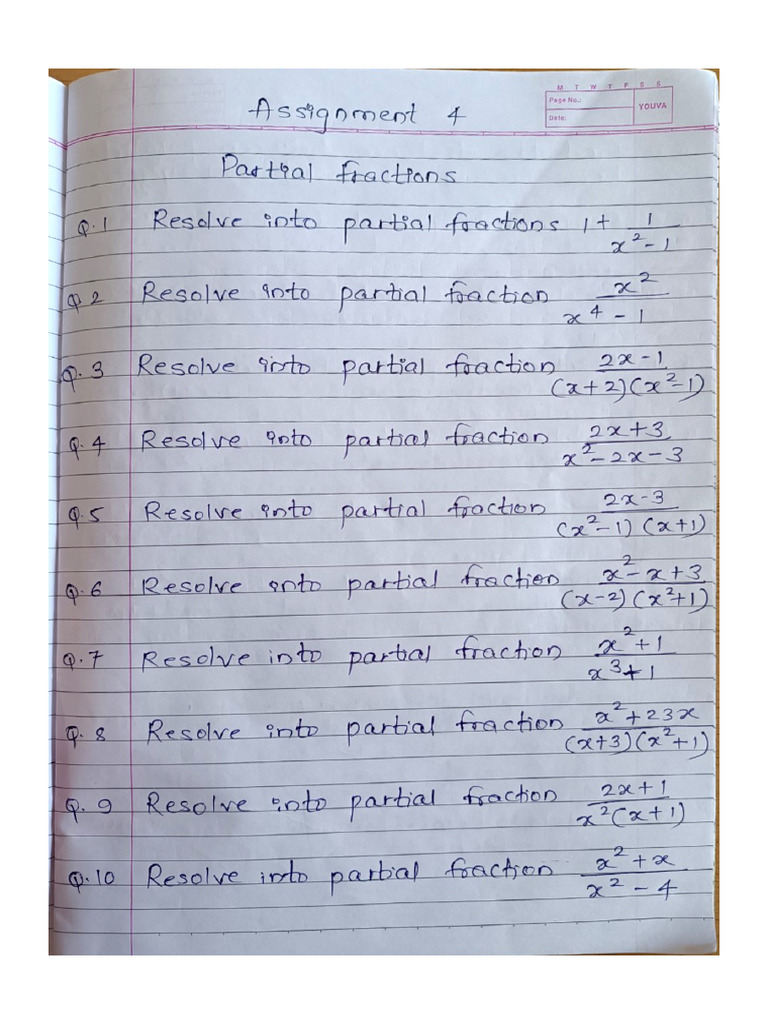 M T W T F S S
Page No.:
Date:
YOUVA
Assignment 4
Partial fractions
Q.1 Resolve into partial fractions 1 + 1/(x²-1)
Q 2 Resolve into partial fraction x²/(x⁴-1)
Q.3 Resolve into partial fraction (2x-1)/((x+2)(x²-1))
Q.4 Resolve into partial fraction (2x+3)/(x²-2x-3)
Q.5 Resolve into partial fraction (2x-3)/((x²-1)(x+1))
Q.6 Resolve into partial fraction (x²-x+3)/((x-2)(x²+1))
Q.7 Resolve into partial fraction (x²+1)/(x³+1)
Q.8 Resolve into partial fraction (x²+23x)/((x+3)(x²+1))
Q.9 Resolve into partial fraction (2x+1)/(x²(x+1))
Q.10 Resolve into partial fraction (x²+x)/(x²-4)